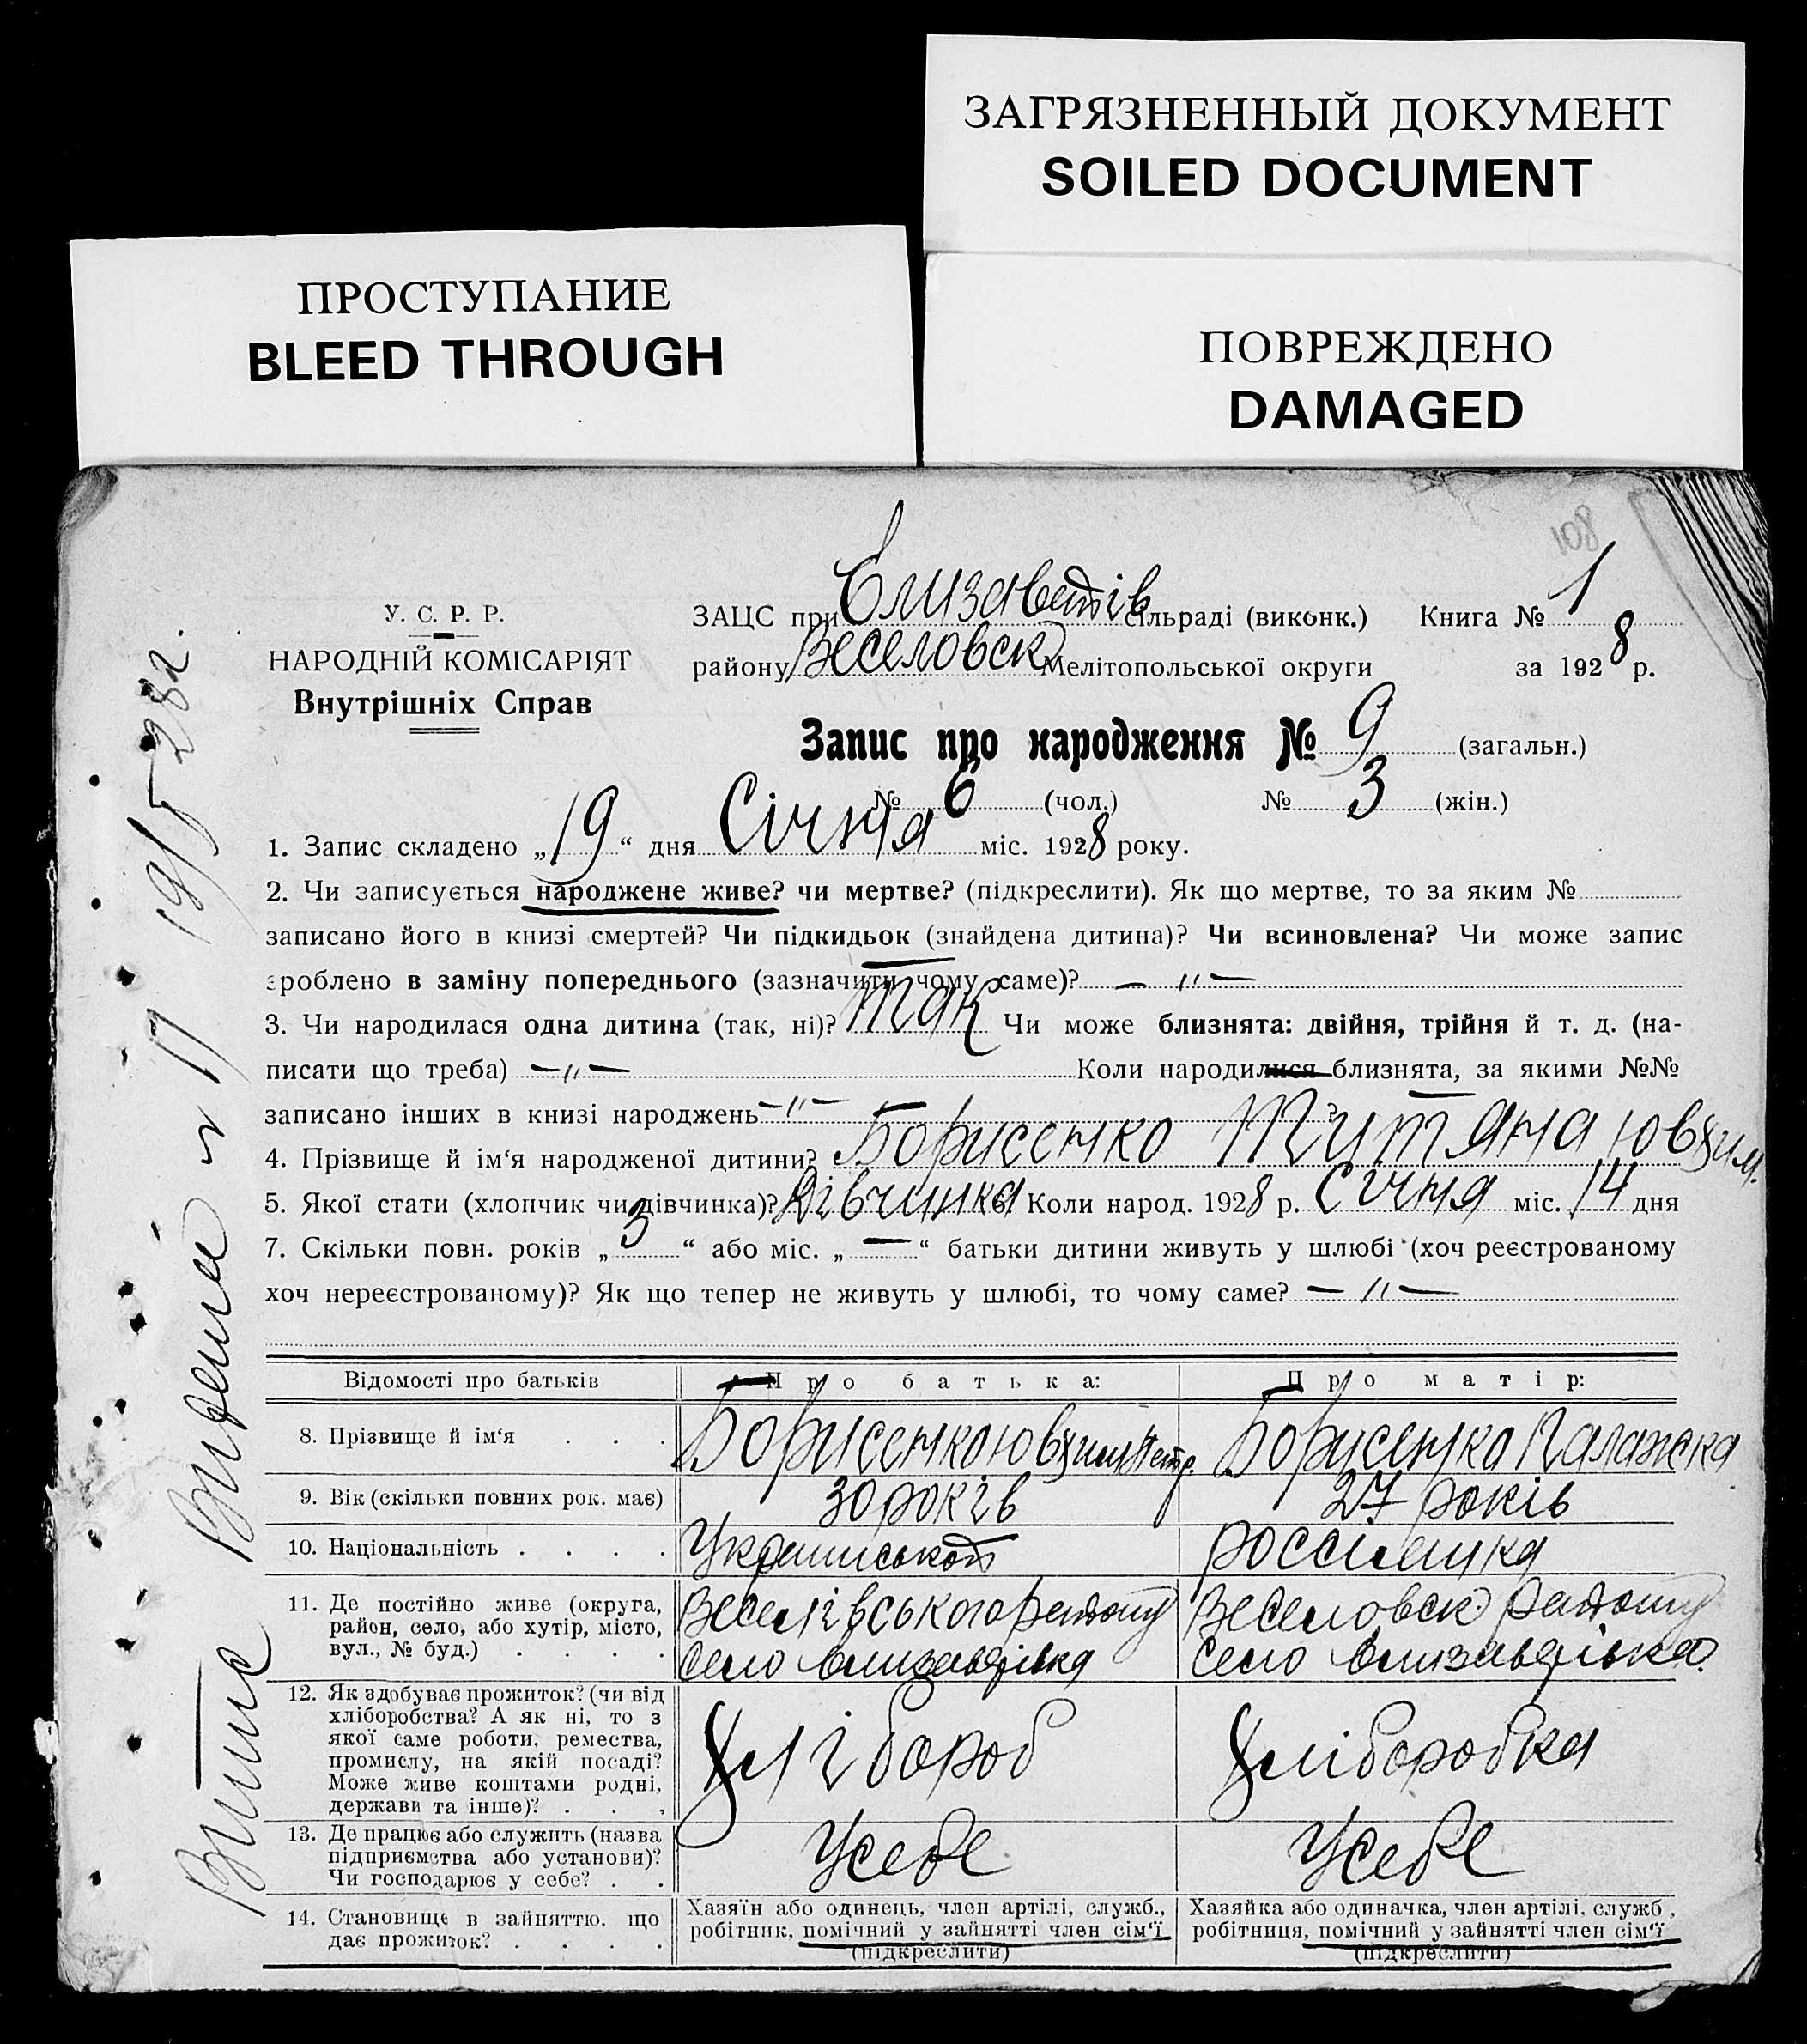 ЗАГРЯЗНЕННЫЙ ДОКУМЕНТ
SOILED DOCUMENT
ПРОСТУПАНИЕ
BLEED THROUGH
ПОВРЕЖДЕНО
DAMAGED
108
У. С. Р. Р.
НАРОДНІЙ КОМІСАРІЯТ
Внутрішніх Справ
ЗАЦС при Елизаветів сільраді (виконк.) Книга № 1
району Веселовск Мелітопольської округи за 1928 р.
Запис про народження № 9 (загальн.)
№ 6 (чол.) № 3 (жін.)
1. Запис складено „19“ дня Січня міс. 1928 року.
2. Чи записується народжене живе? чи мертве? (підкреслити). Як що мертве, то за яким №
записано його в книзі смертей? Чи підкидьок (знайдена дитина)? Чи всиновлена? Чи може запис
зроблено в заміну попереднього (зазначити чому саме)? — „ —
3. Чи народилася одна дитина (так, ні)? так Чи може близнята: двійня, трійня й т. д. (на-
писати що треба) — „ — Коли народилися близнята, за якими №№
записано інших в книзі народжень — „ — ?
4. Прізвище й ім‘я народженої дитини? Борисенко Титяна Ювхим.
5. Якої стати (хлопчик чи дівчинка)? Дівчинка 6. Коли народ. 1928 р. Січня міс. 14 дня
7. Скільки повн. років „3“ або міс. „—“ батьки дитини живуть у шлюбі (хоч реєстрованому
хоч нереєстрованому)? Як що тепер не живуть у шлюбі, то чому саме? — „ —
Відомості про батьків Про батька: Про матір:
8. Прізвище й ім‘я . . . Борисенко Ювхим Петр. Борисенко Палажка
9. Вік (скільки повних рок. має) 30 років 27 років
10. Національність . . . . россиянка
11. Де постійно живе (округа,
район, село, або хутір, місто,
вул., № буд.) . . . .
Веселівського району
село Елизаветівка
Веселовск. району
село Елизаветівка
12. Як здобуває прожиток? (чи від
хліборобства? А як ні, то з
якої саме роботи, ремества,
промислу, на якій посаді?
Може живе коштами родні,
держави та інше)? . . .
Хлібороб
Хліборобка
13. Де працює або служить (назва
підприємства або установи)?
Чи господарює у себе? . .
Усебе
Усебе
14. Становище в зайняттю, що
дає прожиток? . . . .
Хазяїн або одинець, член артілі, служб.,
робітник, помічний у зайнятті член сім‘ї
(підкреслити)
Хазяйка або одиначка, член артілі, служб ,
робітниця, помічний у зайнятті член сім‘ї
(підкреслити)